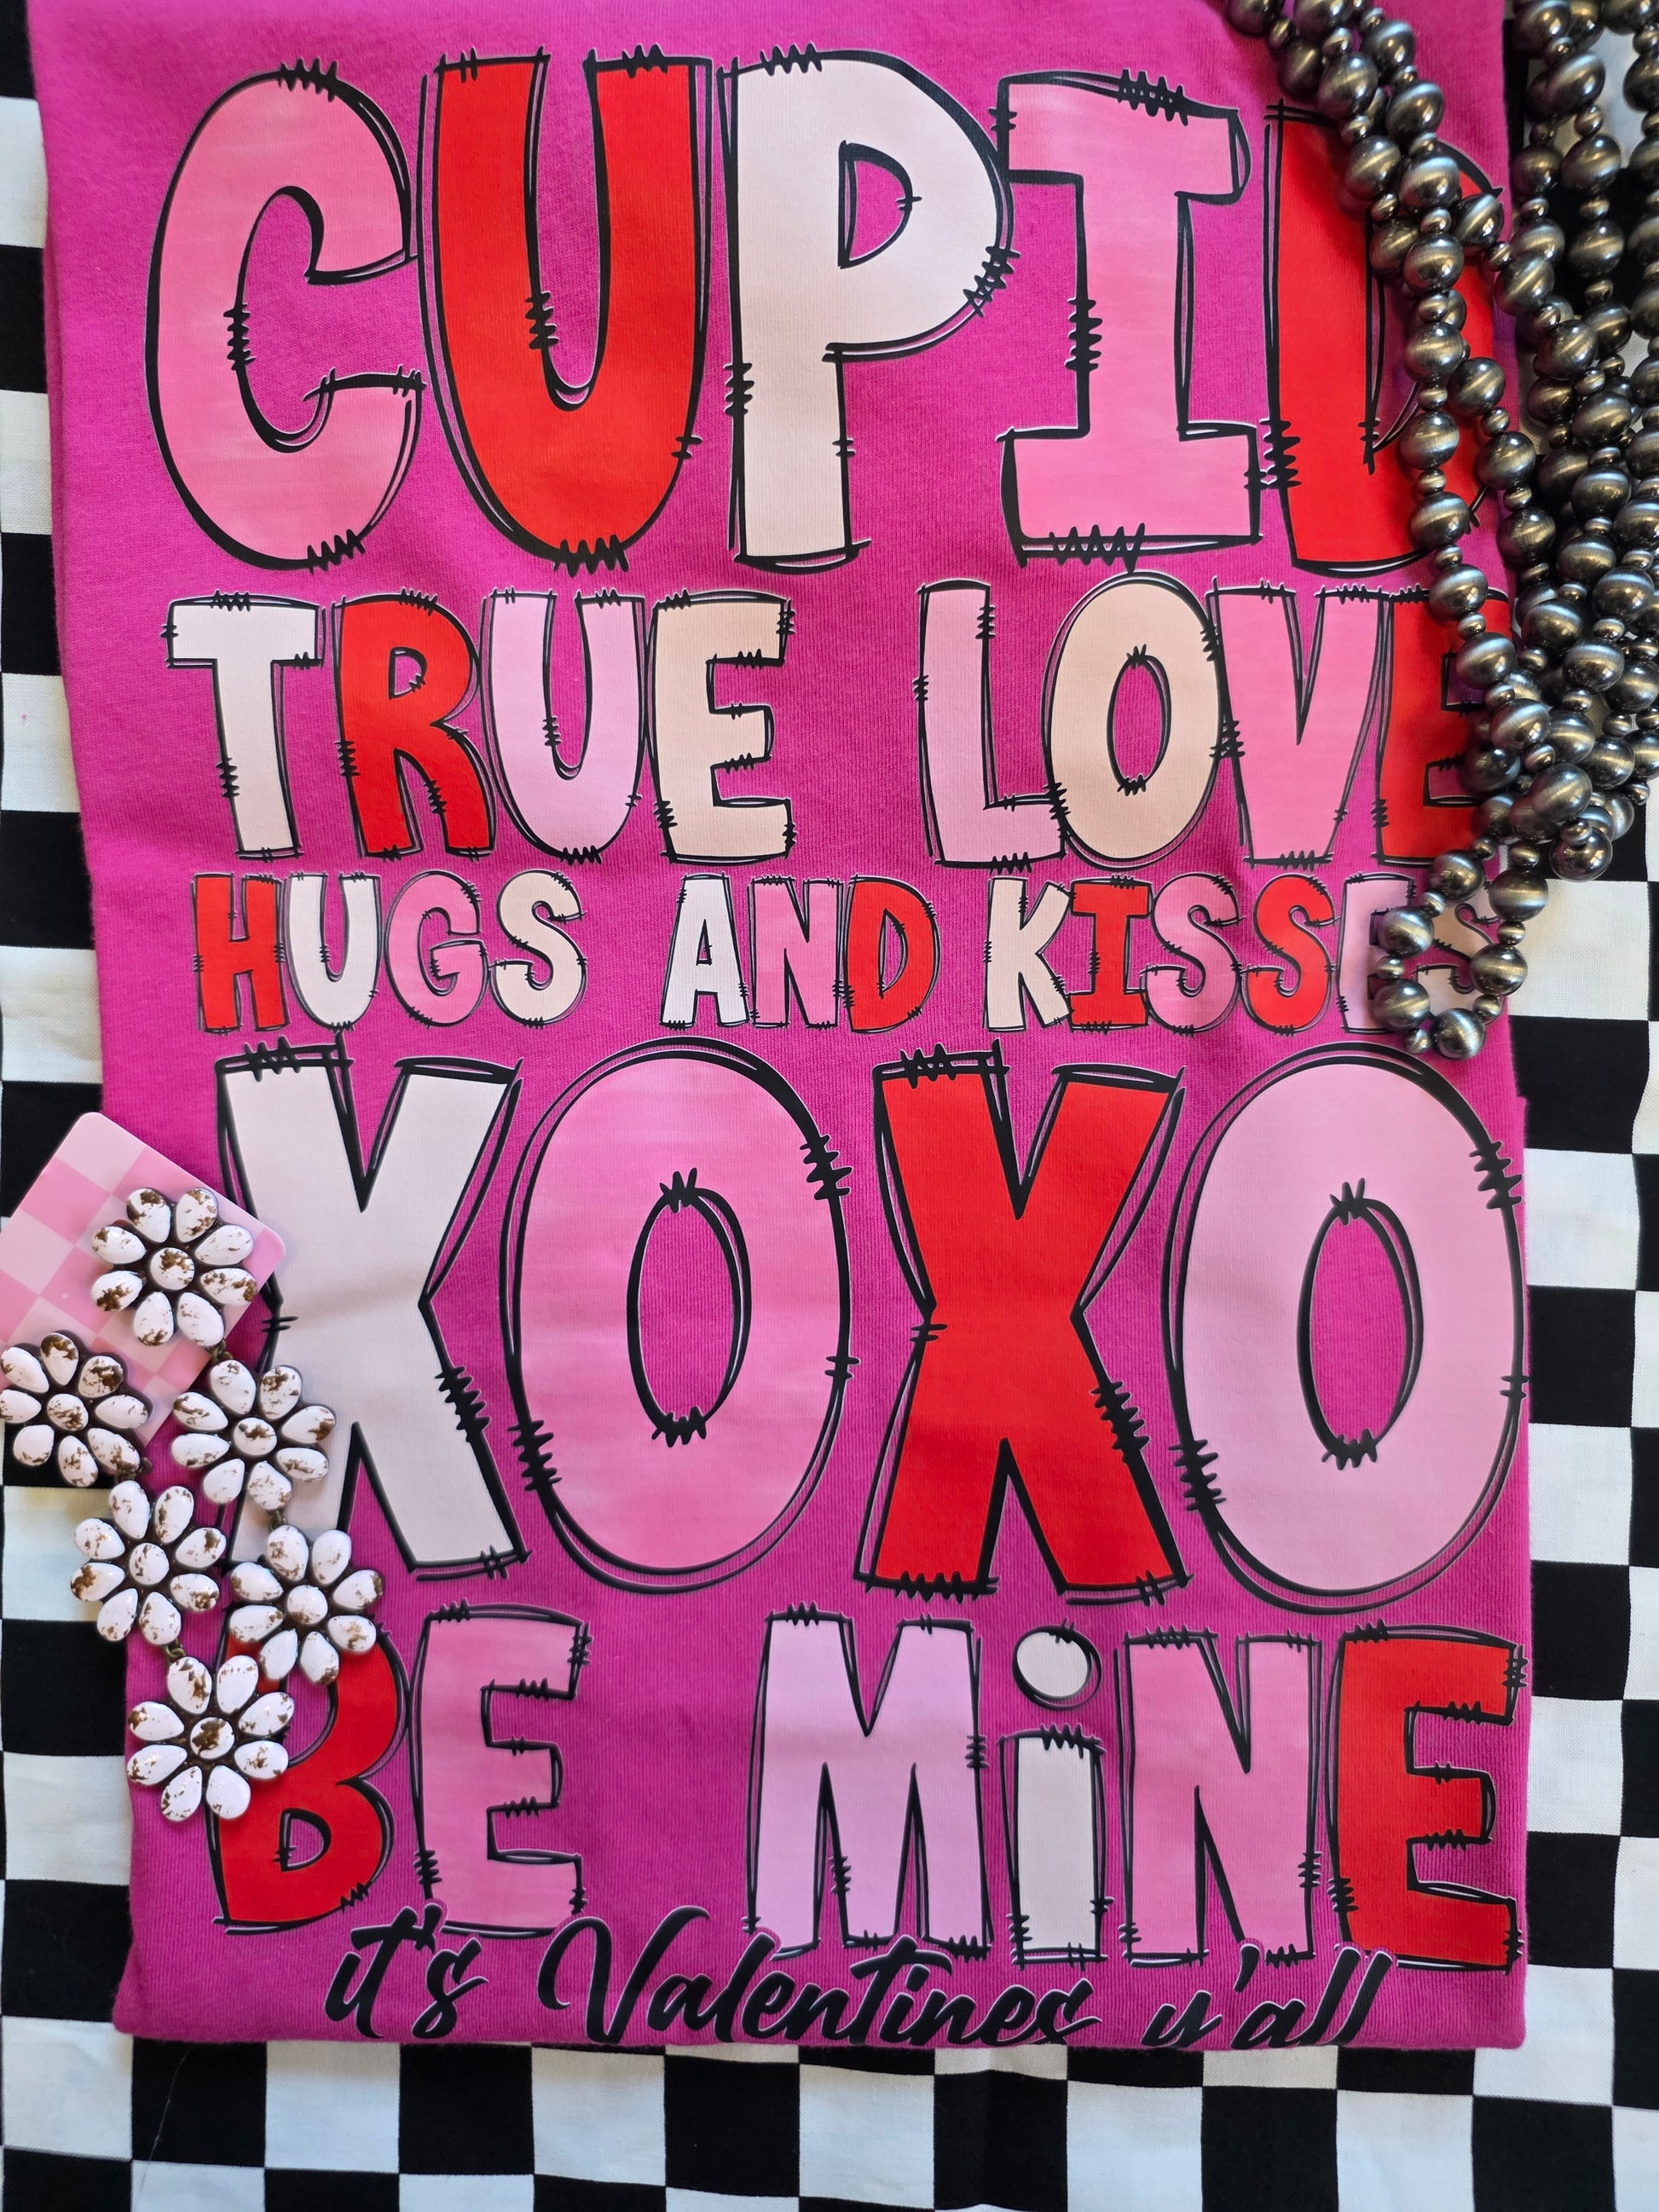 CUPID
TRUE LOVE
HUGS AND KISSES
XOXO
BE MiNE
it's Valentines y'all